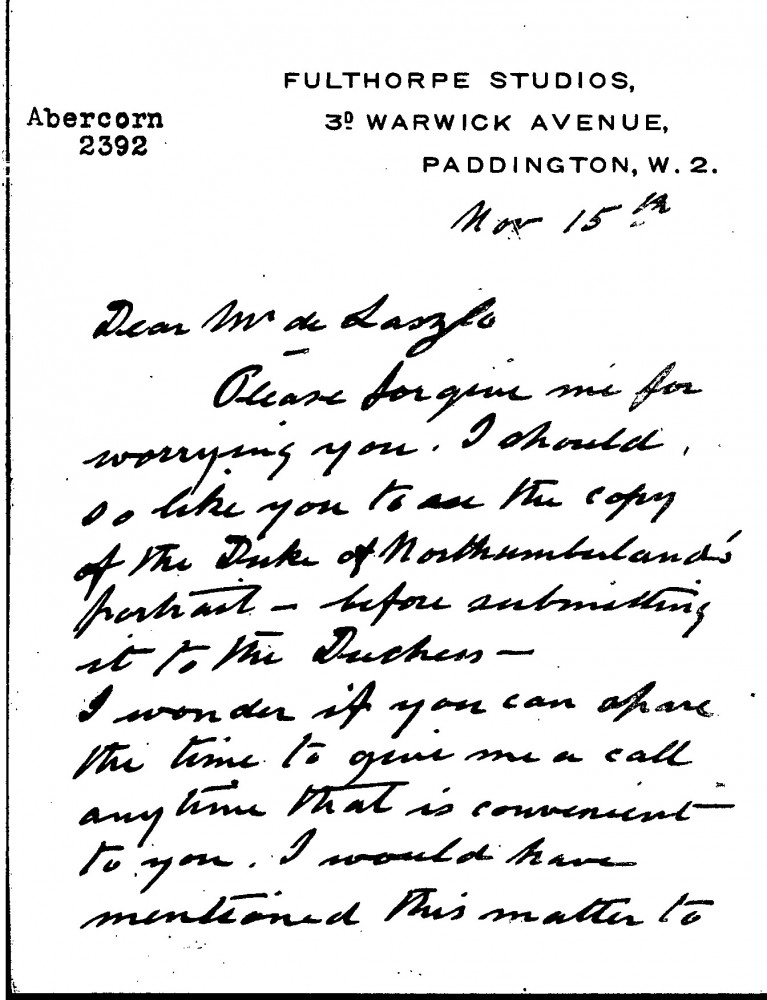 FULTHORPE STUDIOS,
Abercorn
3D WARWICK AVENUE,
2392
PADDINGTON, W. 2.
Nov 15th
Dear Mr de Laszlo
Please forgive me for
worrying you. I should
so like you to see the copy
of the Duke of Northumberland's
portrait – before submitting
it to the Duchess –
I wonder if you can spare
the time to give me a call
any time that is convenient
to you. I would have
mentioned this matter to